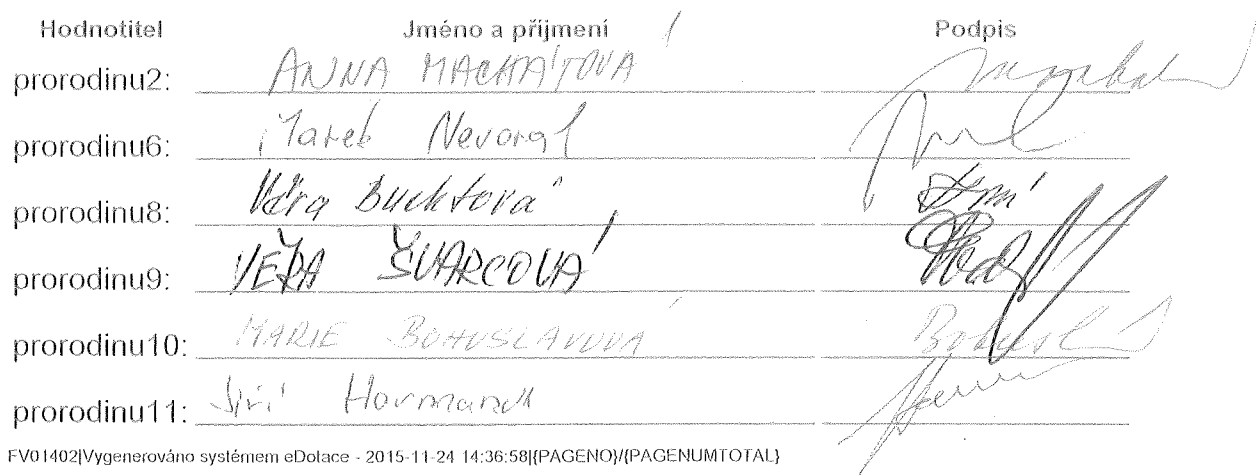 Hodnotitel Jméno a příjmení Podpis
prorodinu2: ANNA MACHÁTOVÁ
prorodinu6: Marek Nevoral
prorodinu8: Věra Bucktová
prorodinu9: VĚRA ŠVARCOVÁ
prorodinu10: MARIE BOHUSLAVOVÁ
prorodinu11: Jiří
FV01402|Vygenerováno systémem eDotace - 2015-11-24 14:36:58|{PAGENO}/{PAGENUMTOTAL}